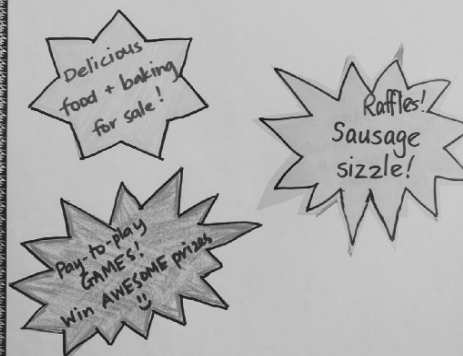 Delicious
food + baking
for sale!
Raffles!
Sausage
sizzle!
Pay-to-play
GAMES!
Win AWESOME prizes